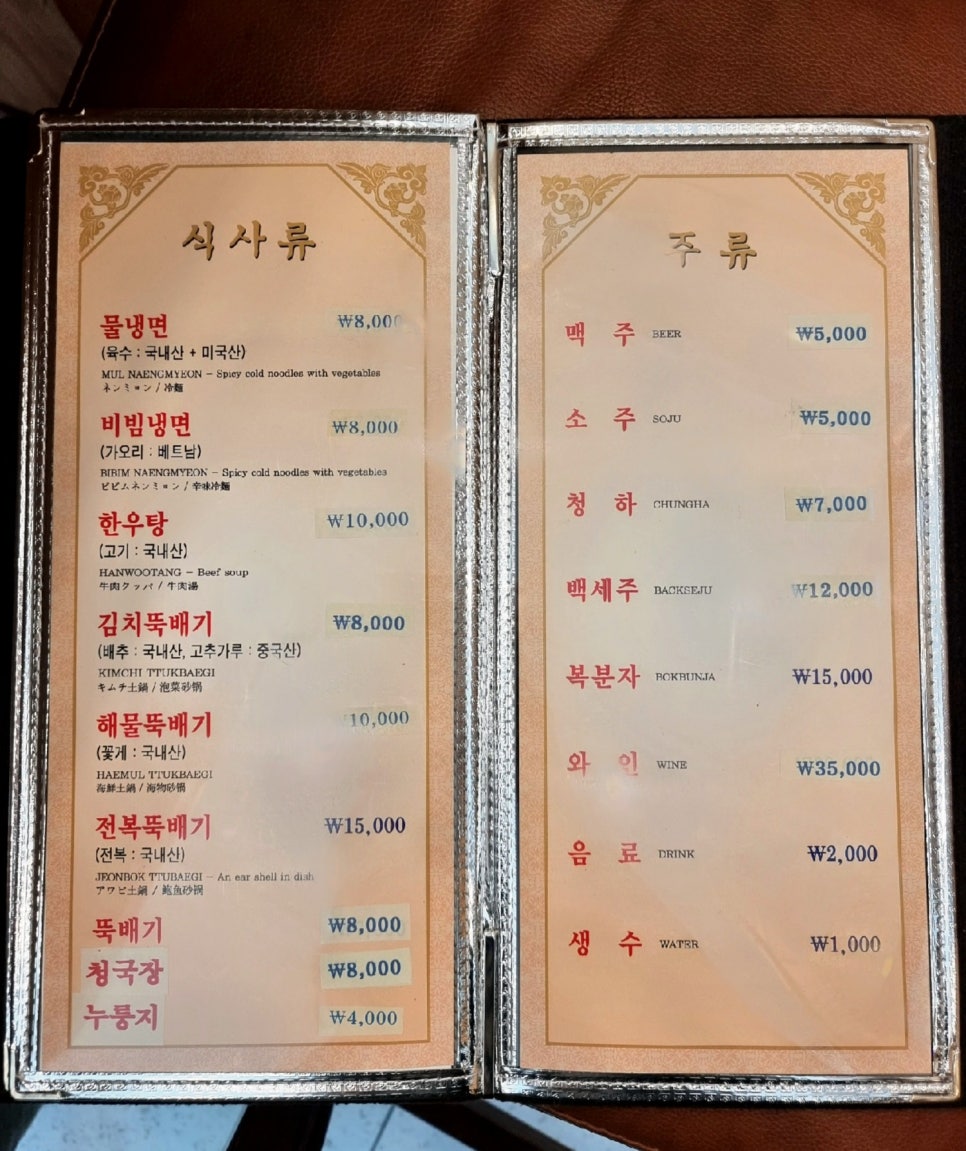 식사류
물냉면 ₩8,000
(육수 : 국내산 + 미국산)
MUL NAENGMYEON - Spicy cold noodles with vegetables
ネンミョン / 冷麵
비빔냉면 ₩8,000
(가오리 : 베트남)
BIBIM NAENGMYEON - Spicy cold noodles with vegetables
ビビムネンミョン / 辛味冷麵
한우탕 ₩10,000
(고기 : 국내산)
HANWOOTANG - Beef soup
牛肉クッパ / 牛肉湯
김치뚝배기 ₩8,000
(배추 : 국내산, 고추가루 : 중국산)
KIMCHI TTUKBAEGI
キムチ土鍋 / 泡菜砂锅
해물뚝배기 10,000
(꽃게 : 국내산)
HAEMUL TTUKBAEGI
海鮮土鍋 / 海物砂锅
전복뚝배기 ₩15,000
(전복 : 국내산)
JEONBOK TTUBAEGI - An ear shell in dish
アワビ土鍋 / 鲍鱼砂锅
뚝배기 ₩8,000
청국장 ₩8,000
누룽지 ₩4,000
주류
맥주 BEER ₩5,000
소주 SOJU ₩5,000
청하 CHUNGHA ₩7,000
백세주 BACKSEJU ₩12,000
복분자 BOKBUNJA ₩15,000
와인 WINE ₩35,000
음료 DRINK ₩2,000
생수 WATER ₩1,000